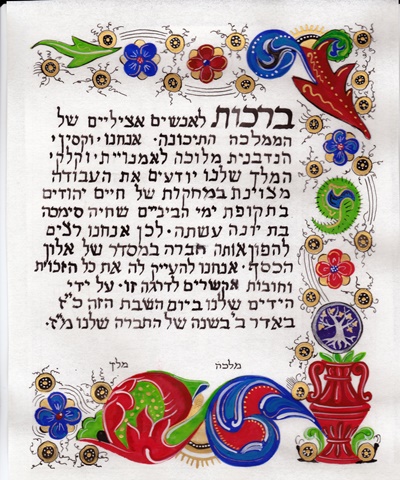 ברכות לאנשים אציליים של
הממלכה התיכונה. אנחנו, וקסין י
הנדבנית מלוכה לאמנויית וקלקי
המלך שלנו יודעים את העבודה
מצוינת במחקרות של חיים יהודים
בתקופת ימי הביניים שחיה סימסה
בת יונה עשתה. לכן אנחנו רצים
להפון אותה חברה במסדר של אלון
הכסף. אנחנו להעייק לה את כל הזכוית
וחובות אקשרים לדרגה זו. על ידי
הידים שלנו ביום השבת הזה כ״ז
באדר ב׳ בשנה של החברה שלנו מ״ז.
מלכה
מלך